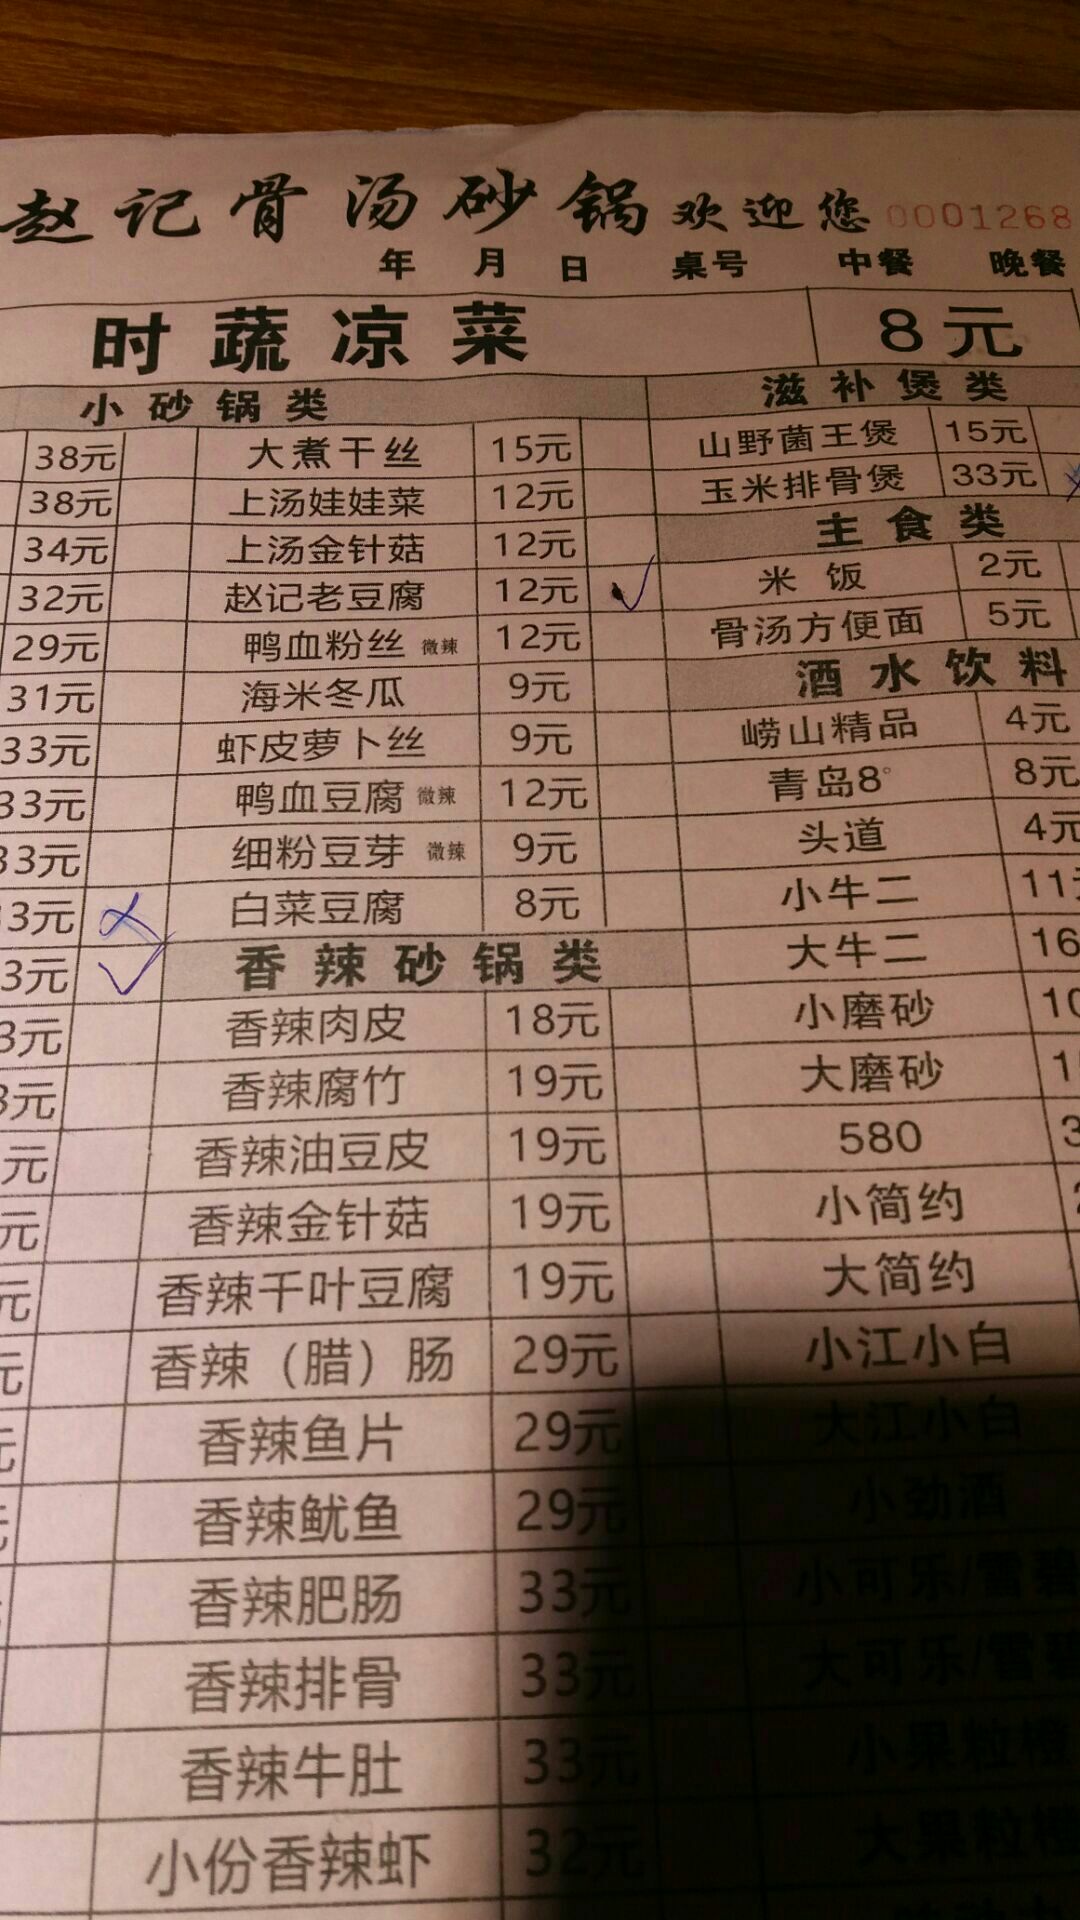 赵记骨汤砂锅欢迎您 0001268
年 月 日 桌号 中餐 晚餐
时蔬凉菜 8元
小砂锅类 滋补煲类
38元 大煮干丝 15元 山野菌王煲 15元
38元 上汤娃娃菜 12元 玉米排骨煲 33元
34元 上汤金针菇 12元 主食类
32元 赵记老豆腐 12元 米饭 2元
29元 鸭血粉丝 微辣 12元 骨汤方便面 5元
31元 海米冬瓜 9元 酒水饮料
33元 虾皮萝卜丝 9元 崂山精品 4元
33元 鸭血豆腐 微辣 12元 青岛8° 8元
33元 细粉豆芽 微辣 9元 头道 4元
3元 白菜豆腐 8元 小牛二 11
3元 香辣砂锅类 大牛二 16
3元 香辣肉皮 18元 小磨砂 10
3元 香辣腐竹 19元 大磨砂 1
元 香辣油豆皮 19元 580 3
元 香辣金针菇 19元 小简约
元 香辣千叶豆腐 19元 大简约
元 香辣（腊）肠 29元 小江小白
元 香辣鱼片 29元 大江小白
香辣鱿鱼 29元 小劲酒
香辣肥肠 33元 小可乐/雪碧
香辣排骨 33元 大可乐/雪碧
香辣牛肚 33元 小果粒橙
小份香辣虾 32元 大果粒橙